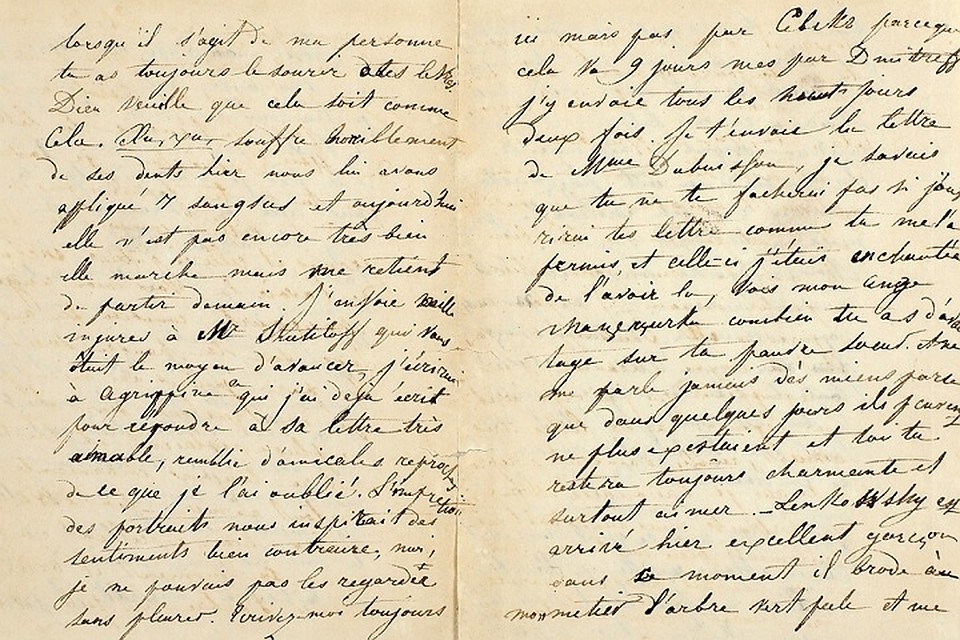 lorsqu'il s'agit de ma personne
tu as toujours le sourir des
Dieu veuille que cela soit comme
Cela. souffre horriblement
de ses dents hier nous lui avons
appliqué 7 sangsus et aujourd'hui
elle n'est pas encore très bien
elle marche mais me retient
de partir demain. J'envoie mille
injures à Mr qui vous
ôtait le moyen d'avancer, j'écrirai
à Agrippine qui j'ai déja écrit
pour repondre à sa lettre très
aimable, remblie d'amicales reproches
de ce que je l'ai oublié. L'impression
des portraits nous inspirait des
sentiments bien contraire, moi,
je ne pouvais pas les regarder
sans pleurer. Ecrivez-moi toujours
ici mais pas par parceque
cela va 9 jours mes par
j'y envoie tous les jours
deux fois. Je t'envoie la lettre
de Mme Dubuisson, je savais
que tu ne te facherai pas si j'ouv
rirai tes lettre comme tu me l'a
permis, et celle-ci j'étais enchantée
de l'avoir lu, Vois mon ange
combien tu as d'avan
tage sur ta pauvre soeur. A
me parle jamais dès miens parse
que dans quelques jours ils peuvent
ne plus exestaient et toi tu
restera toujours charmante et
surtout aimer. - Lenkowsky est
arrivé hier excellent garçon
dans ce moment il brode au
mon metier l'arbre vert pale et me